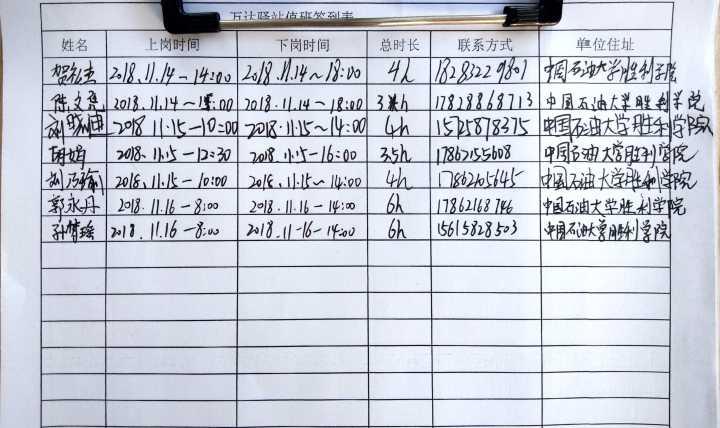 万达驿站值班签到表
姓名 上岗时间 下岗时间 总时长 联系方式 单位住址
2018.11.14-14:00 2018.11.14~18:00 4h 18283229801 中国石油大学胜利学院
陈文亮 2018.11.14~ 2018.11.14~18:00 17828868713 中国石油大学胜利学院
刘晓迪 2018 11.15-10:00 2018.11.15~14:00 4h 15725878375 中国石油大学胜利学院
胡娟 2018.11.15-12:30 2018.11.15-16:00 3.5h 17862155608 中国石油大学胜利学院
2018.11.15-10:00 2018.11.15~14:00 4h 17862105645 中国石油大学胜利学院
郭永丹 2018.11.16-8:00 2018.11.16-14:00 6h 17862168746 中国石油大学胜利学院
孙梦瑶 2018.11.16-8:00 2018.11-16-14:00 6h 15615828503 中国石油大学胜利学院